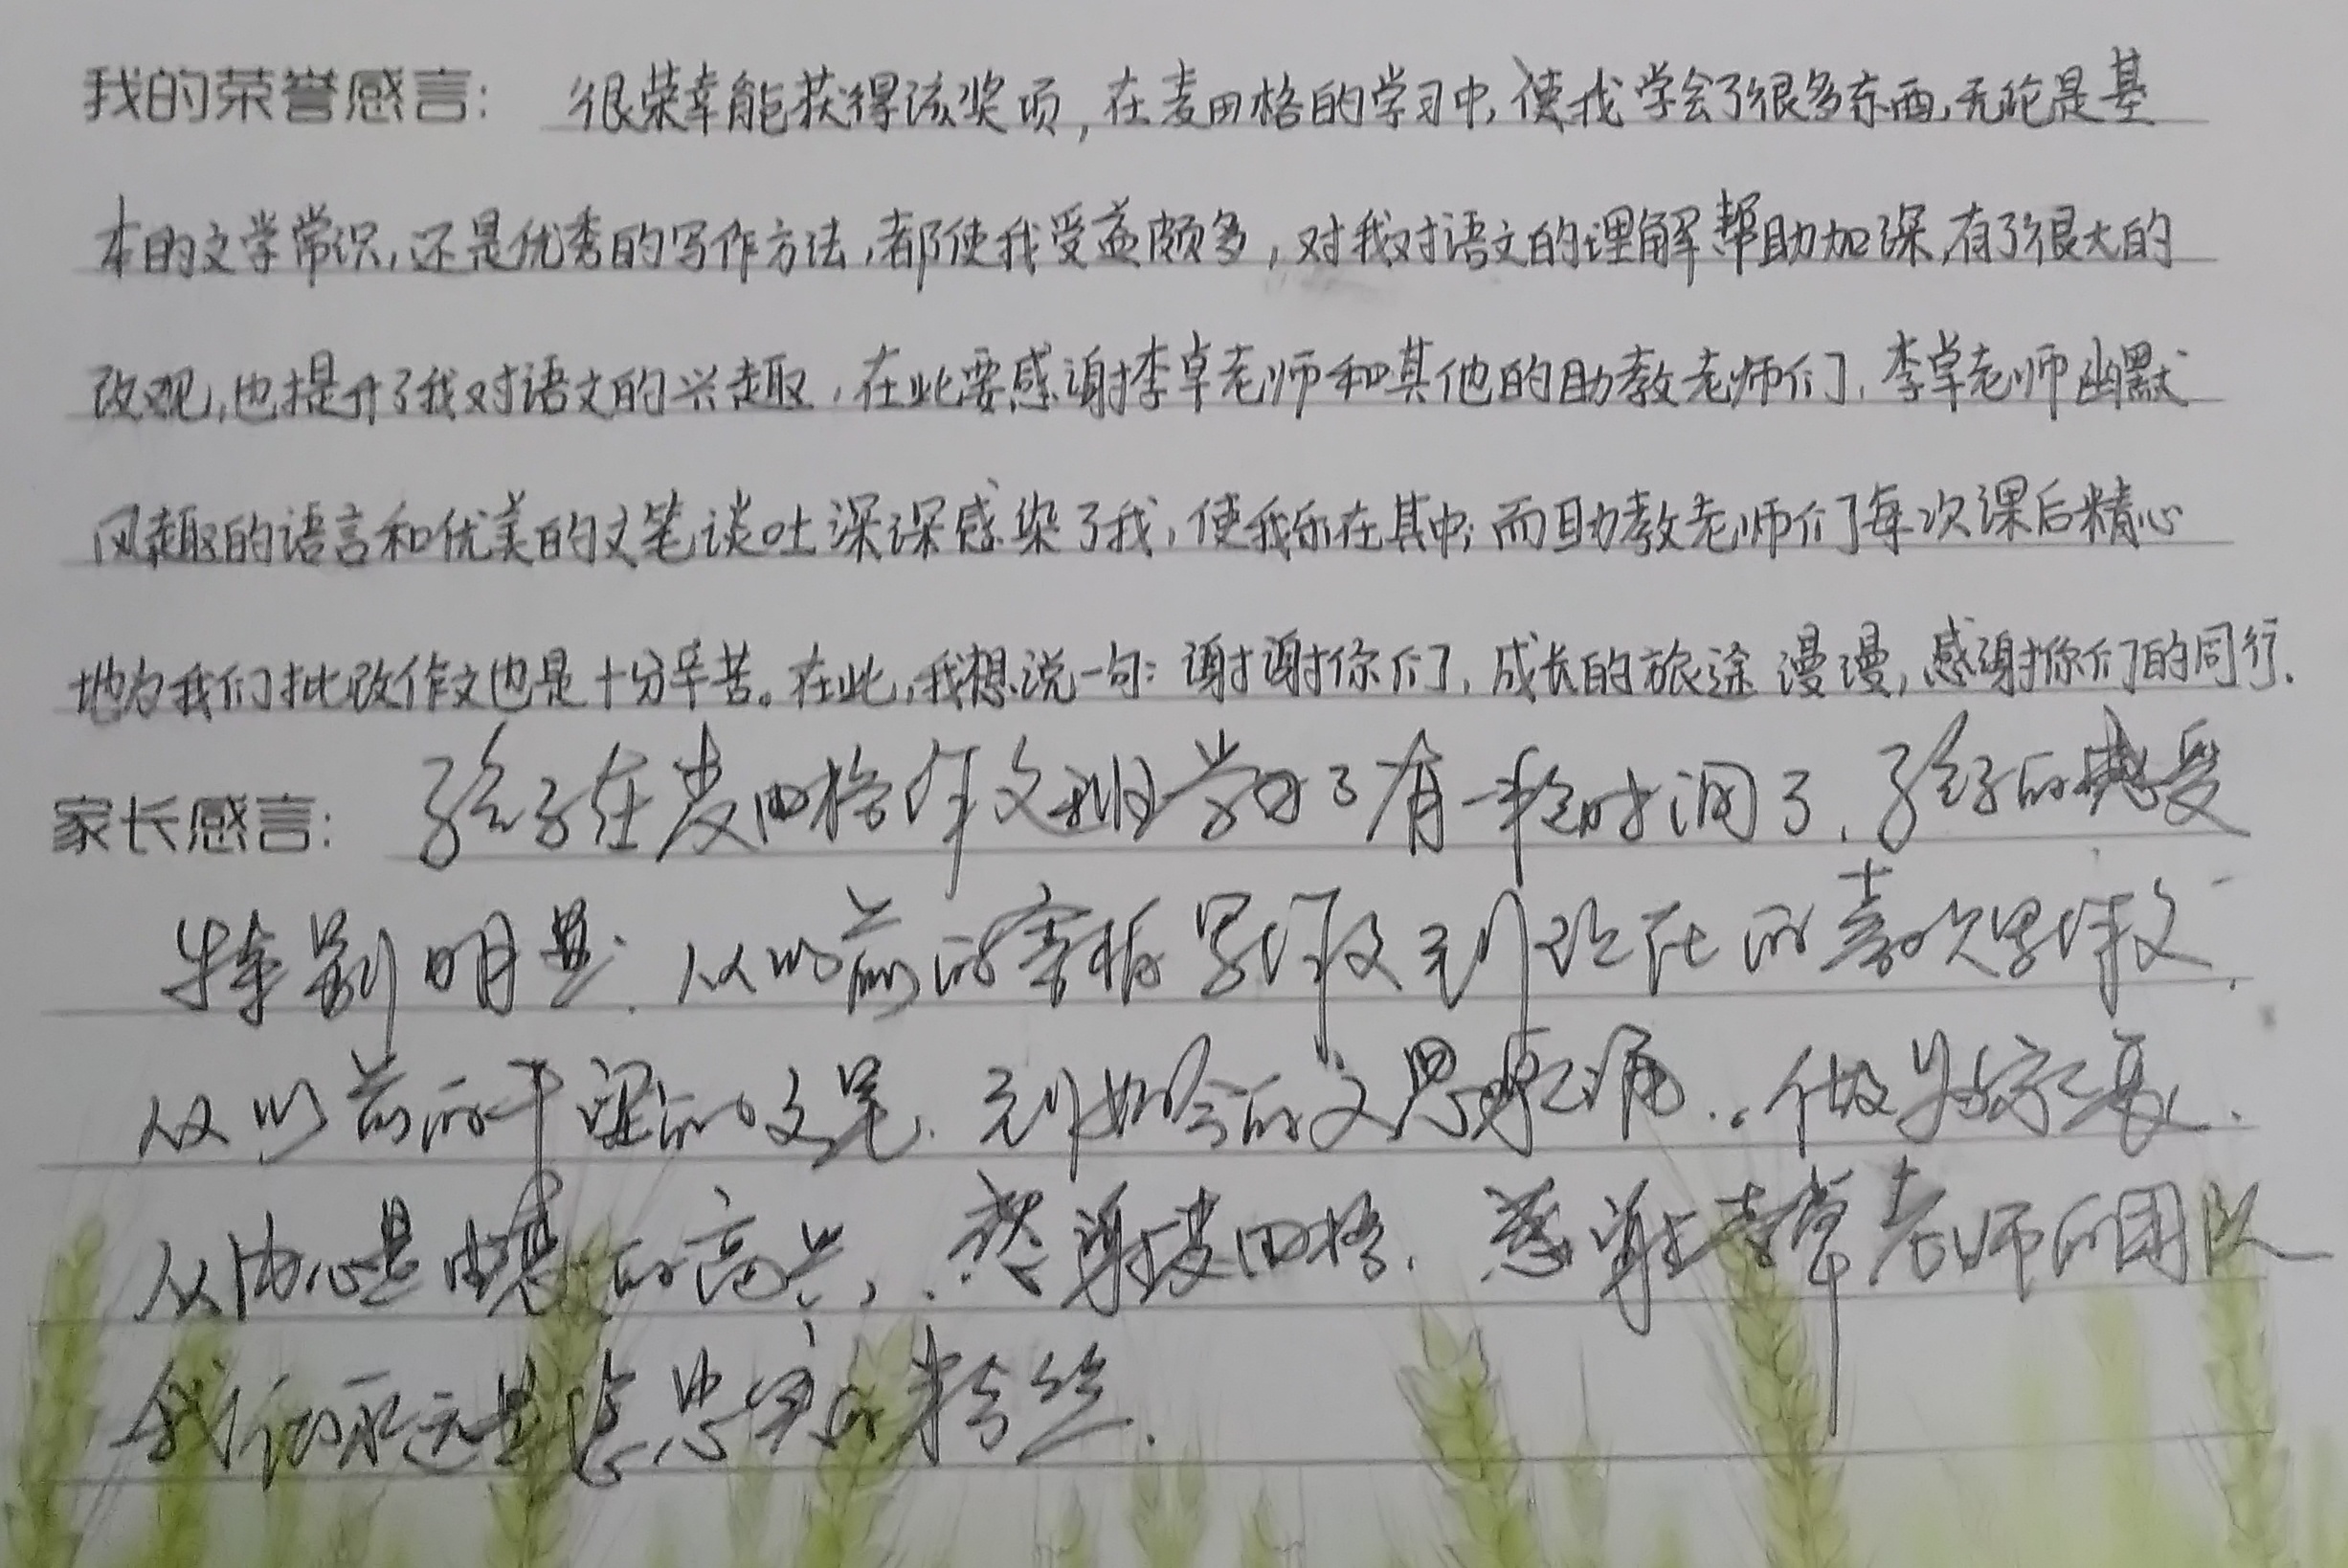 我的荣誉感言: 很荣幸能获得该奖项,在麦田格的学习中,使我学会了很多东西,无论是基
本的文学常识,还是优秀的写作方法,都使我受益颇多,对我对语文的理解帮助加深,有了很大的
改观,也提升了我对语文的兴趣,在此要感谢李卓老师和其他的助教老师们,李卓老师幽默
风趣的语言和优美的文笔谈吐深深感染了我,使我乐在其中;而助教老师们每次课后精心
地为我们批改作文也是十分辛苦。在此,我想说一句:谢谢你们,成长的旅途漫漫,感谢你们的同行.
家长感言: 孩子在麦田格作文班学习了有一段时间了.孩子的感受
特别明显.从以前的害怕写作文到现在的喜欢写作文.
从以前的干涩的文笔.到如今的文思泉涌.做为家长.
从内心是由衷的高兴,.感谢麦田格.感谢李卓老师的团队
我们永远是您忠实的粉丝.